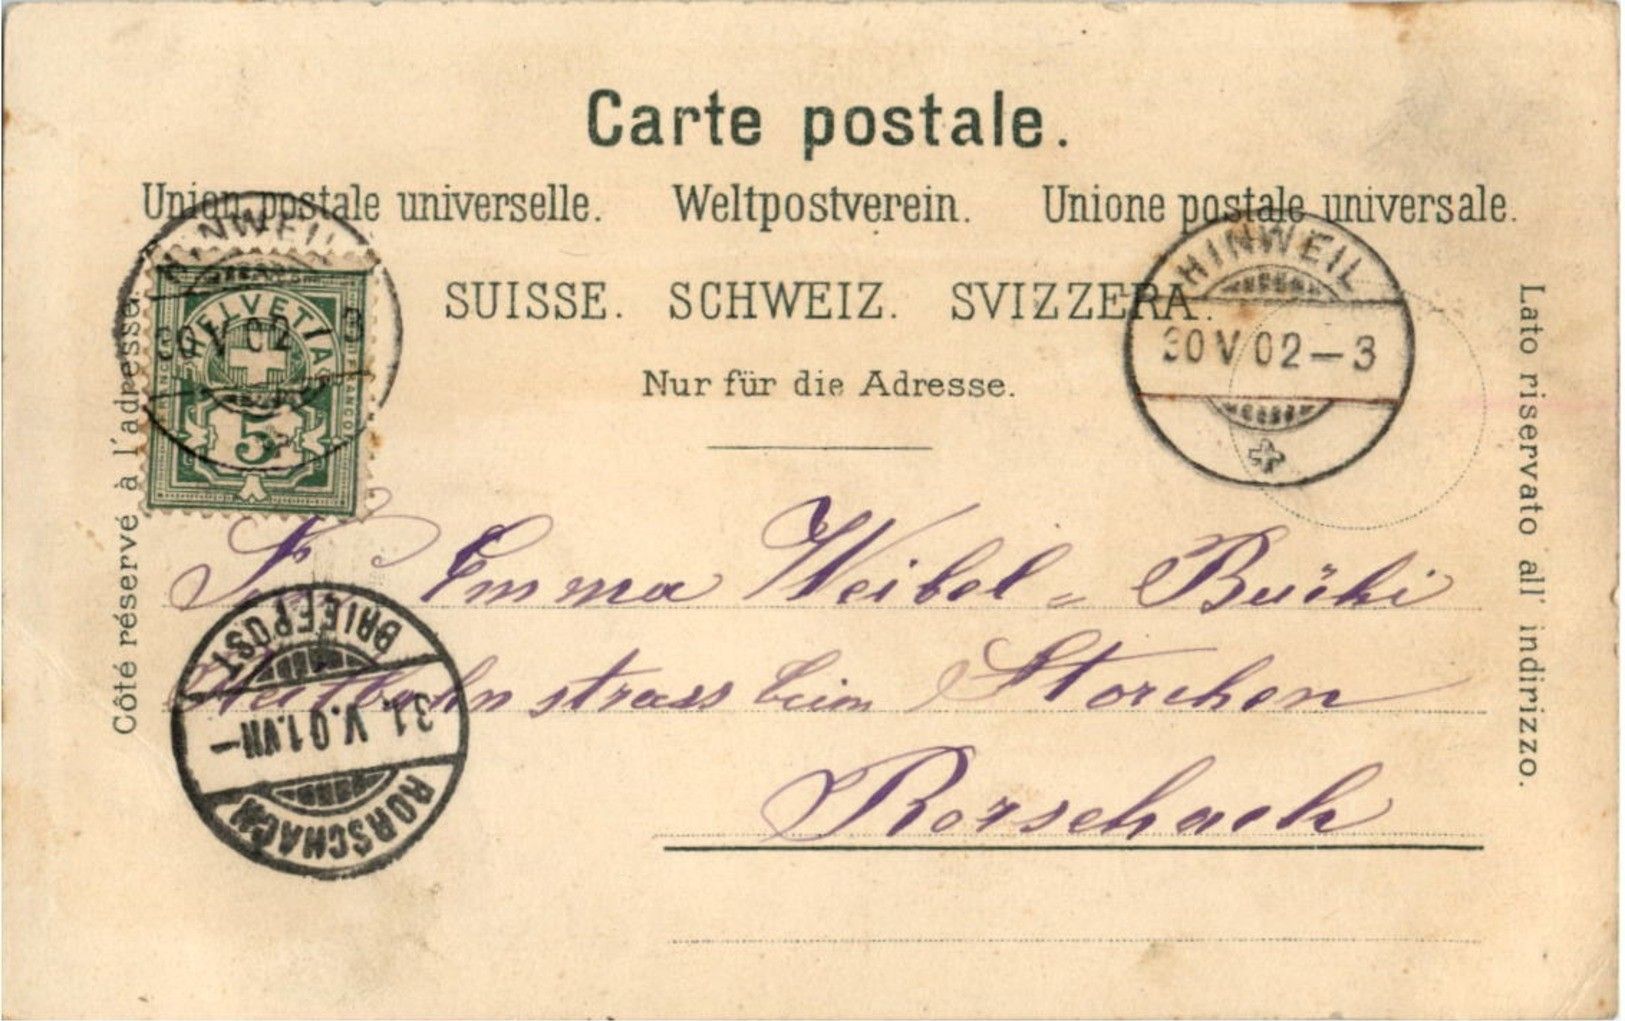 Carte postale.
Union postale universelle. Weltpostverein. Unione postale universale.
SUISSE. SCHWEIZ. SVIZZERA.
Nur für die Adresse.
Côté réservé à l'adresse.
Lato riservato all' indirizzo.
HINWEIL
30 V 02 3
HELVETIA
FRANCO
5
HINWEIL
30 V 02-3
Fr Emma Weibel-Büchi
strass beim Storchen
Rorschach
BRIEFPOST
31. V. 01. VII-
RORSCHACH